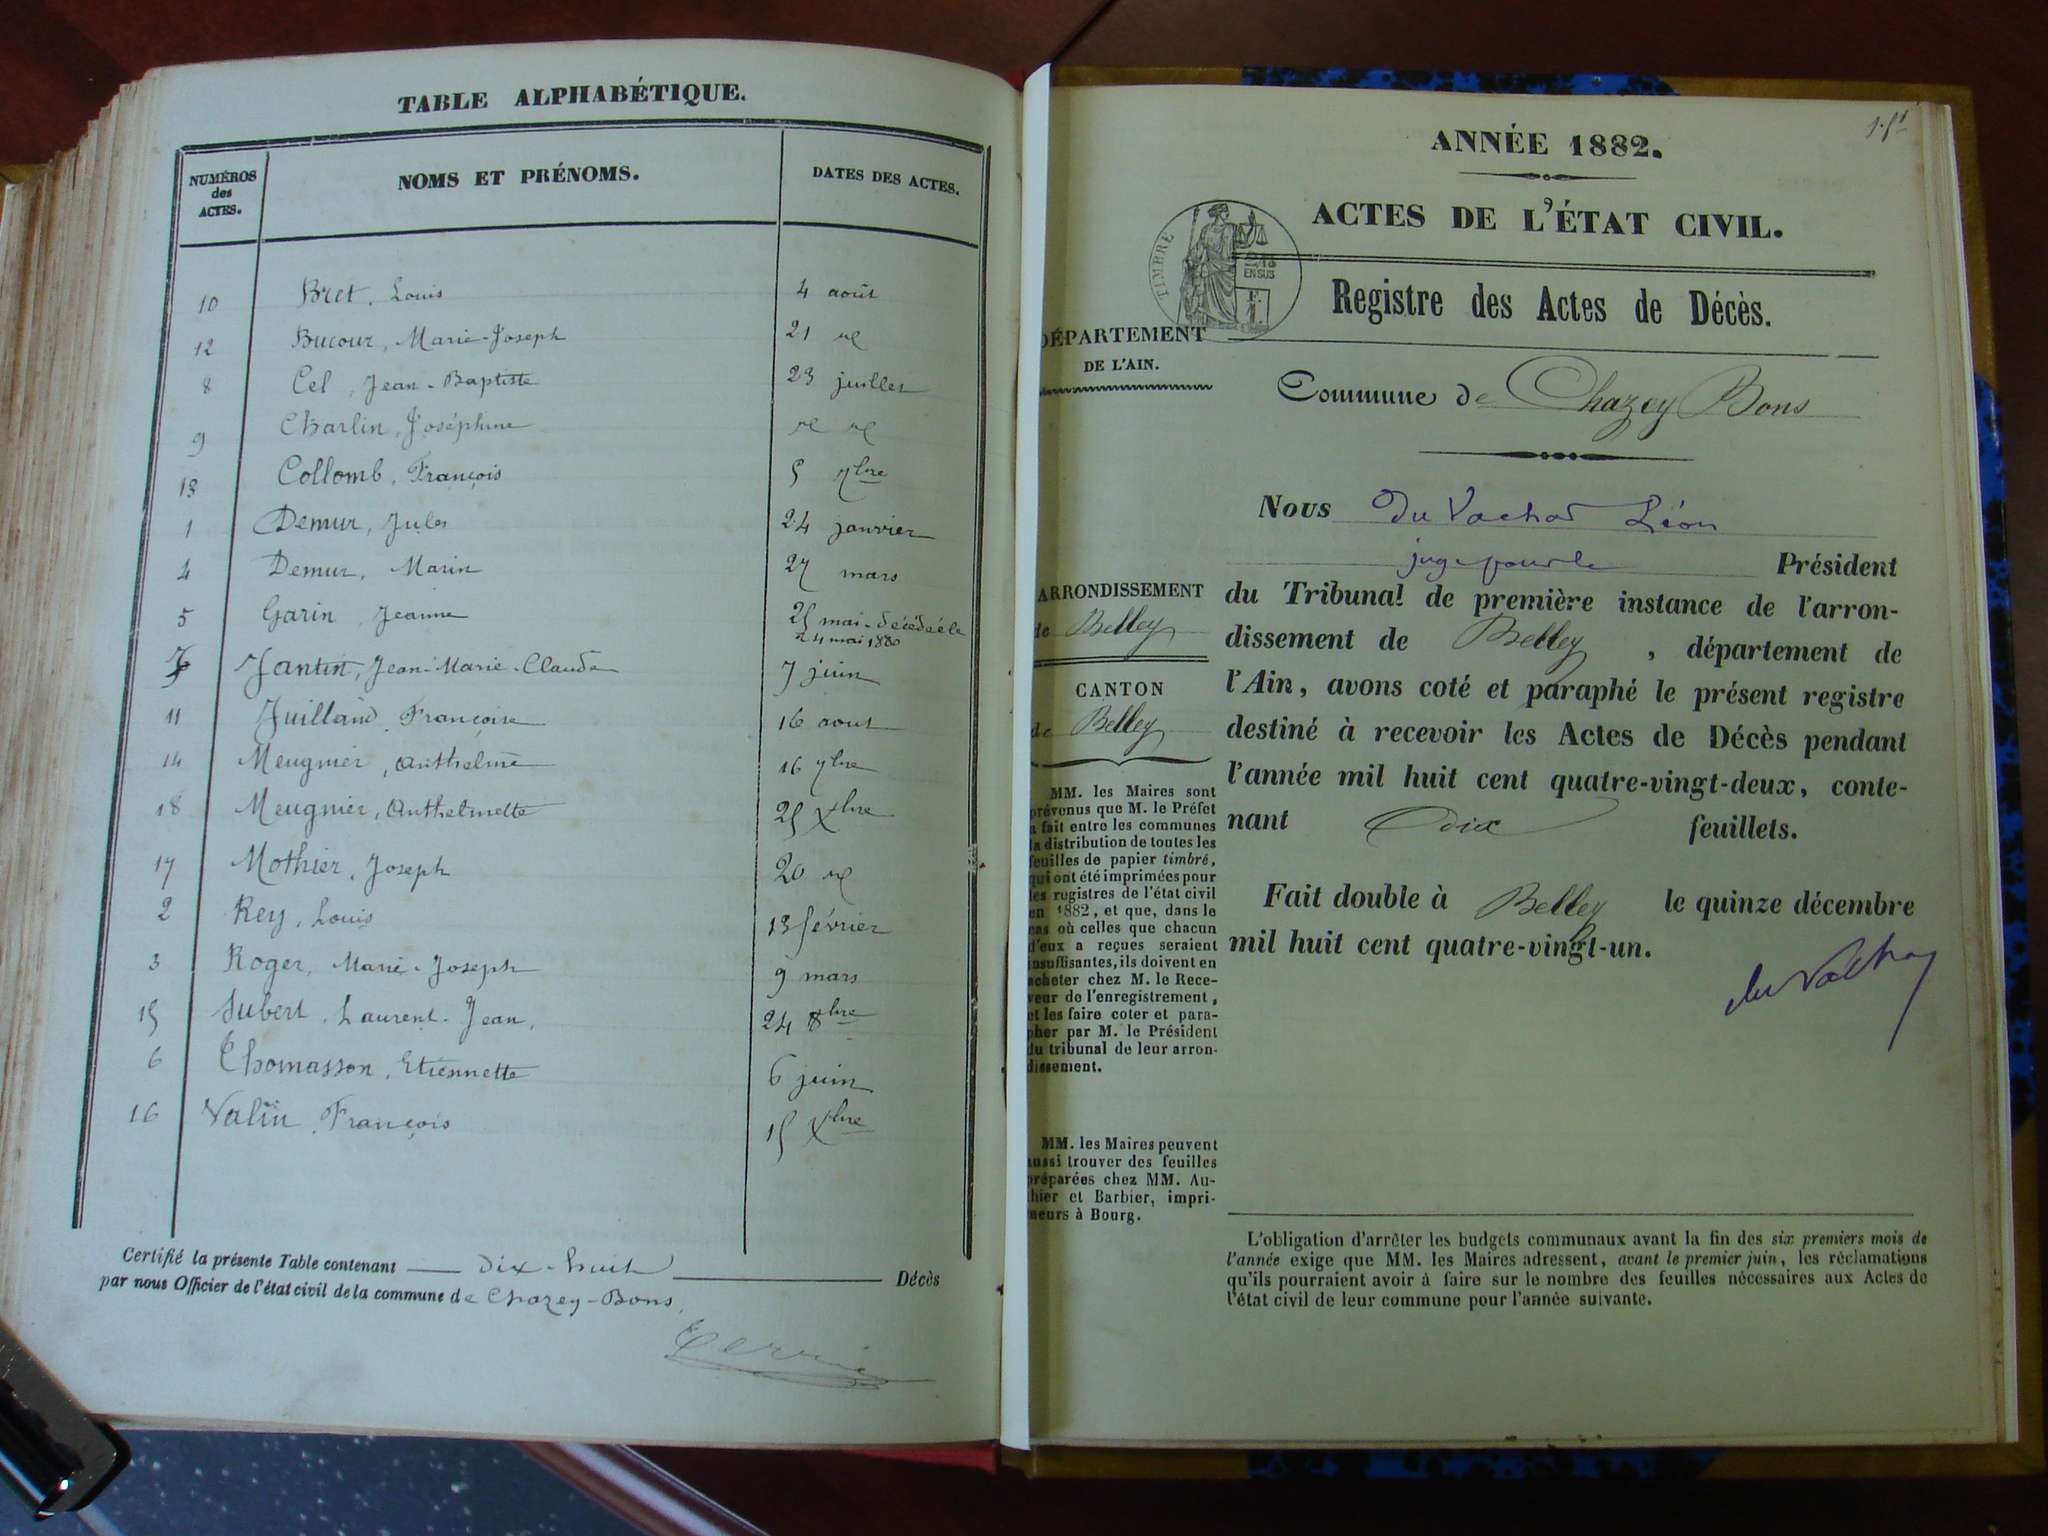 TABLE ALPHABÉTIQUE.
NUMÉROS des ACTES. NOMS ET PRÉNOMS. DATES DES ACTES.
10 Bret, Louis 4 août
12 Bucour, Marie-Joseph 21 id
8 Cel, Jean-Baptiste 23 juillet
9 Charlin, Joséphine id id
13 Collomb, François 5 7bre
1 Demur, Jules 24 janvier
4 Demur, Marin 27 mars
5 Garin, Jeanne 25 mai - décédée le
24 mai 1880
7 Jantin, Jean-Marie-Claude 7 juin
11 Juilland, Françoise 16 aout
14 Meugnier, Anthelme 16 7bre
18 Meugnier, Anthelmette 25 Xbre
17 Mothier, Joseph 20 id
2 Rey, Louis 13 février
3 Roger, Marie-Joseph 9 mars
15 Subert, Laurent-Jean, 24 8bre
6 Thomasson, Etiennette 6 juin
16 Valin, François 15 Xbre
Certifié la présente Table contenant dix-huit Décès
par nous Officier de l'état civil de la commune de Chazey-Bons,
ANNÉE 1882.
ACTES DE L'ÉTAT CIVIL.
TIMBRE
2/10
EN SUS
Registre des Actes de Décès.
DÉPARTEMENT
DE L'AIN.
Commune de Chazey Bons
Nous Du Vachat Léon
juge pour le Président
du Tribunal de première instance de l'arron-
dissement de Belley, département de
l'Ain, avons coté et paraphé le présent registre
destiné à recevoir les Actes de Décès pendant
l'année mil huit cent quatre-vingt-deux, conte-
nant dix feuillets.
Fait double à Belley le quinze décembre
mil huit cent quatre-vingt-un.
du Vachat
ARRONDISSEMENT
de Belley
CANTON
de Belley
MM. les Maires sont
prévenus que M. le Préfet
a fait entre les communes
la distribution de toutes les
feuilles de papier timbré,
qui ont été imprimées pour
les registres de l'état civil
en 1882, et que, dans le
cas où celles que chacun
d'eux a reçues seraient
insuffisantes, ils doivent en
acheter chez M. le Rece-
veur de l'enregistrement,
et les faire coter et para-
pher par M. le Président
du tribunal de leur arron-
dissement.
MM. les Maires peuvent
aussi trouver des feuilles
préparées chez MM. Au-
thier et Barbier, impri-
meurs à Bourg.
L'obligation d'arrêter les budgets communaux avant la fin des six premiers mois de
l'année exige que MM. les Maires adressent, avant le premier juin, les réclamations
qu'ils pourraient avoir à faire sur le nombre des feuilles nécessaires aux Actes de
l'état civil de leur commune pour l'année suivante.